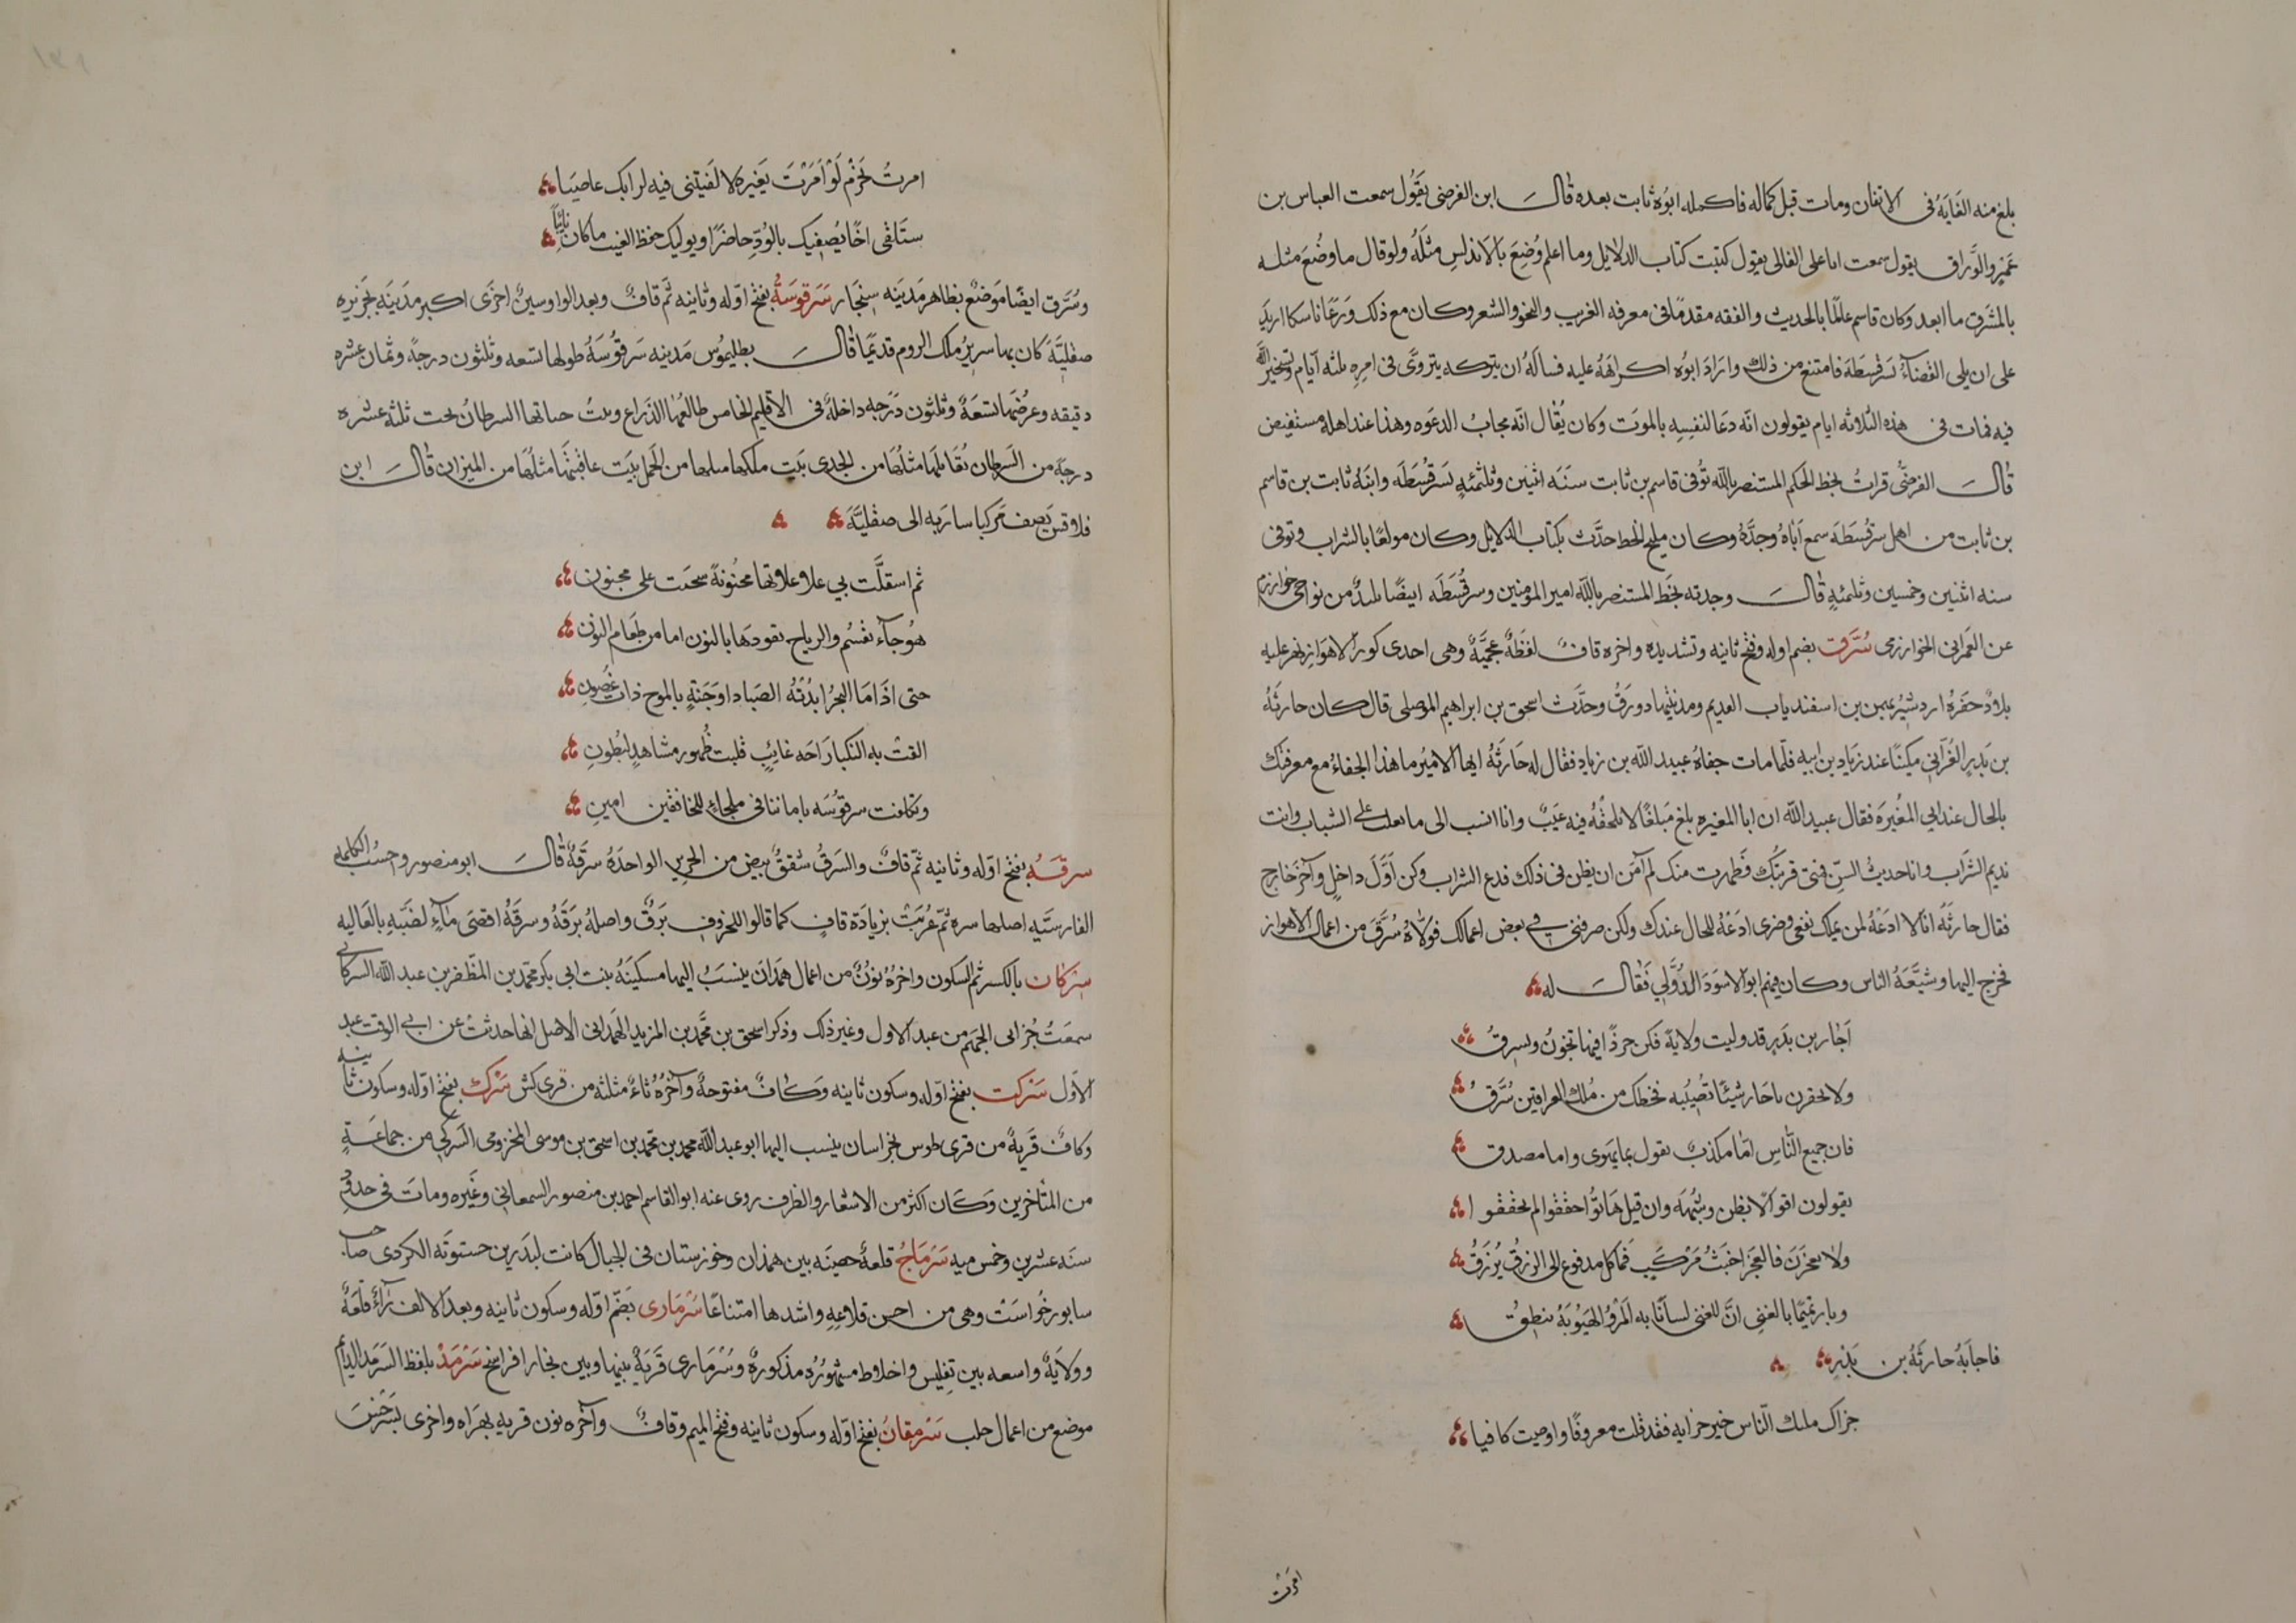 بلغ منه الغَايَةُ فى الاتقان ومات قبل كماله فاكمله ابوُه ثابت بعده قالَ ابن الفرضى يقَوُل سمعت العباس بن
عَمرٍو الوَّراق يقول سمعت ابا على القالى يقول كتبت كتاب الدلايل وما اعلم وُضِعَ بالاندلسِ مثلَهُ ولو قال ما وُضعَ مثله
بالمشَرق ما ابعد وكان قاسم عالمًا بالحديث والفقه مقدمًا فى معرفه الغريب والنحو والشعر وكان مع ذلك وَرَعًا ناسكا اريدَ
على ان يلى القضَآءُ بَسَرقسطَةَ فامتنع من ذلك وارَادَ ابوُه اكراهَهُ عليه فسالَهُ ان يتركه يتروَّى فى امرِهِ ثلثه آيام ويَستخيرُ اللهَ
فيه فمات فى هذه الثلاثه ايام يقولون انَّه دعَا لنفسِهِ بالموتَ وكان يُقال انَّه مجابُ الدعَوه وهذا عند اهله مستفيض
قالَ الفرضىُّ قراتُ بخط الحَكم المستنصر بالله تُوفى قاسم بن ثابت سنَهَ اثنين وثلثمئهٍ بَسَرقسُطَه وابنَهُ ثابت بن قاسم
بن ثابت من اهل سرَقسُطَه سمع آباهُ وجدَّهُ وكان مليح الخط حدَّث بكتاب الدلايل وكان مولعًا بالشراب وتوفى
سنه اثنيين وخمسين وثلثمئهٍ قالَ وجدته بخَط المستنصر بالله امير المؤمنين وسرقُسَطَه ايضًا بلدٌ من نواحى خوارزم
عن العَمرانى الخوارزمى سُرَّق بضم اوله وفتح ثانيه وتشديده واخره قافٌ لفظَهٌ عجَميَّهٌ وهى احدى كور الاهَوازِ نهر عليه
بلادٌ حفَرهُ اردشيُر بهمن بن اسفندياب القديم ومدينُتها دورَقُ وحدَّث اسحق بن ابراهيم الموصلى قال كان حارثهُ
بن بَدرٍ الغُدَانىِ مكينًا عند زيَاد بن ابيه فلَّما مات جفاهُ عبيد الله بن زيادٍ فقال له حَارثَهُ ايها الاميُر ما هذا الجفاءُ مع معرفتك
بالحال عند ابي المغُيَره فقال عبيد الله ان ابا المغيره بلغ مَبلغًا لا يلحقُهُ فيه عيَبٌ وانا انسب الى ما يغلب على الشباب وانت
نديم الشرَاب وانا حديث السِنّ فمتى قربتُكَ فظَهرت منك لم آمَن ان يظن فى ذلك فدع الشراب وكن اَوَّلَ داخلٍ وآخرَ خارج
فقال حارثهَ انا لا ادَعُهُ لمن يملك نفعى وضرى ادَعُهُ للحال عندك ولكن صرفنى فى بعض اعمالك فولاهُ سُرَّقَ من اعمال الاهواز
فخرج اليها وشيَّعَهُ الناس وكان فيهم ابو الاسوَدَ الدُوَّلى فقَالَ له
اَحَارِ بن بَدرٍ قد وليت ولايةً فكن جرذًا فيها تخوُنُ وتسرقُ
ولا تحقرن يا حَارِ شيئًا تصيُبه فحَظك من مُلك العراقين سُرَّقُ
فان جميع النَّاسِ امَّا مكذبٌ يقول بما يهوى واما مصدق
يقولون اقوالًا بظن وشُبهَه وان قيل هَاتوُا حققوا لم يحققوا
ولا تعجزَنَ فالعجَز اخبَثُ مَركبٍ فما كل مدفوع الى الرزق يُرزَقُ
وبارِ تميمًا بالغنى انَّ للغنى لسانًا به المَرُؤ الهيَوُبَهُ ينطقُ
فاجابَهُ حارثَهُ بن بَدْرِ
جزاك ملك النَّاس خير جزايه فقد قلت معروفًا واوصيت كافيا
امرتَ
امرتُ بحَزْمٍ لَوْ اَمَرْتَ بغَيره لا لفَيتنى فيه لرايك عاصيَا
ستَلقى اخًا يُصفيك بالوُدِّ حاضرًا ويوليك حفظ الغيب ما كان نائيًا
وسُرَّق ايضًا مَوضعٌ بظاهر مَديَنه سِنجَار سَرَقوسَةُ بفتح اوّله وثانيه ثمّ قافٌ وبعد الواو سينٌ اخرَى اكبر مدَينَهٍ بجَزيره
صقليَّهَ كان بها سرَيرُ مُلك الروم قديمًا قالَ بطليموُس مَدينه سَرَقوُسَهُ طولها تسَعه وثلثون درجهً وثمان عشره
دقيقه وعرُضها تسعَهٌ وثلثون دَرَجه داخلهٌ فى الاقليم الخامس طالعُها الذَراع وبيتُ حياتها السرطانُ تحت ثلثه عشره
درجهً من السَرطان تقُابلهَا مثلُهَا من الجدى بيَت ملكها مثلها من الحَمل بيَت عاقبُتها مثلهَا من الميزان قالَ ابن
قلاقس يَصف مَركبا سارَبه الى صقليَّهَ
ثم استقلَّت بي علا علاتها مجنُونهً سحَبت على مجنون
هوُجآء تقسُم والرياح تقودهَا بالنون اما من طَعَام النون
حتى اذَا مَا البحرُ ابدَتهُ الصَبا ذا وَجَنةٍ بالموج ذات غصُونِ
القتْ به النكبا رَاحَه غايثٍ قلبت ظهُورَ مشاهدٍ لبُطونِ
وتكلفت سرقوُسَه باماننا فى ملجاءٍ للخائفين امينِ
سرقَهُ بفتح اوّله وثانيه ثمّ قافٌ والسَرقُ شققُ بيض من الحريرِ الواحدَهُ سرَقَهٌ قالَ ابو منصور واحسُب الكلمه
الفارستَّيه اصلها سره ثمّ عُربَتْ بزيادَة قافٍ كما قالوا للخروفِ بَرَقٌ واصلهُ برَهَ وسرقَهُ اقصىَ مآءٍ لضَبَّهِ بالعَاليه
سِركان بالكسر ثم السكون واخرُهُ نوُنٌ من اعمال همَدَانَ ينسَبُ اليها مسكينَهُ بنت ابى بكر محمّد بن المظّفر بن عبد الله السركانى
سمعَتُ جُز ابى الجَهم من عبد الاول وغير ذلك وذكر اسحق بن محَّمد بن المزيد الهَمدانى الاصل انها حدثتْ عن ابي الوقت عبد
الاوّل سَرَكت بفتح اوّله وسكون ثانيه وكافٌ مفتوحهٌ وآخرُهُ ثاءٌ مثلثه من قرى كش سَرَك بفتح اوّله وسكون ثانيه
وكافٌ قرَيهٌ من قرى طوس بخراسان ينسب اليها ابو عبد الله محمد بن محمّد بن اسحق بن موسى المخزومى السَركى من جماعَةٍ
من المتآخرين وكَان اكثر من الاشعار والظرف روى عنه ابو القاسم احمد بن منصور السمعانى وغَيره ومات فى حدود
سنَه عشرين وخمس ميه سَرْمَاجُ قلعهٌ حصينَه بين همَذان وخوزستان فى الجبال كانت لبدَر بن حسنوَيَه الكردى صاحب
سابورخُواسَتْ وهى من احسن قلاعهِ واشدها امتناعًا سُرْمَارى بضَم اوّله وسكون ثانيه وبعد الالف رآءٌ قلعَهٌ
وولايَهٌ واسعه بين تِفليس واخلاط مشهوُرهٌ مذكورهٌ وسُرْمَارى قَريَهٌ بينها وبين بخارا ثلاثة فراسخ سَرْمَدْ بلفظ السَرَمد الدائم
موضع من اعمال حلب سَرْمقانُ بفتح اوّله وسكون ثانيه وفتح الميم وقافٌ وآخره نون قريه بهرَاه واخرى بسَرخسَ